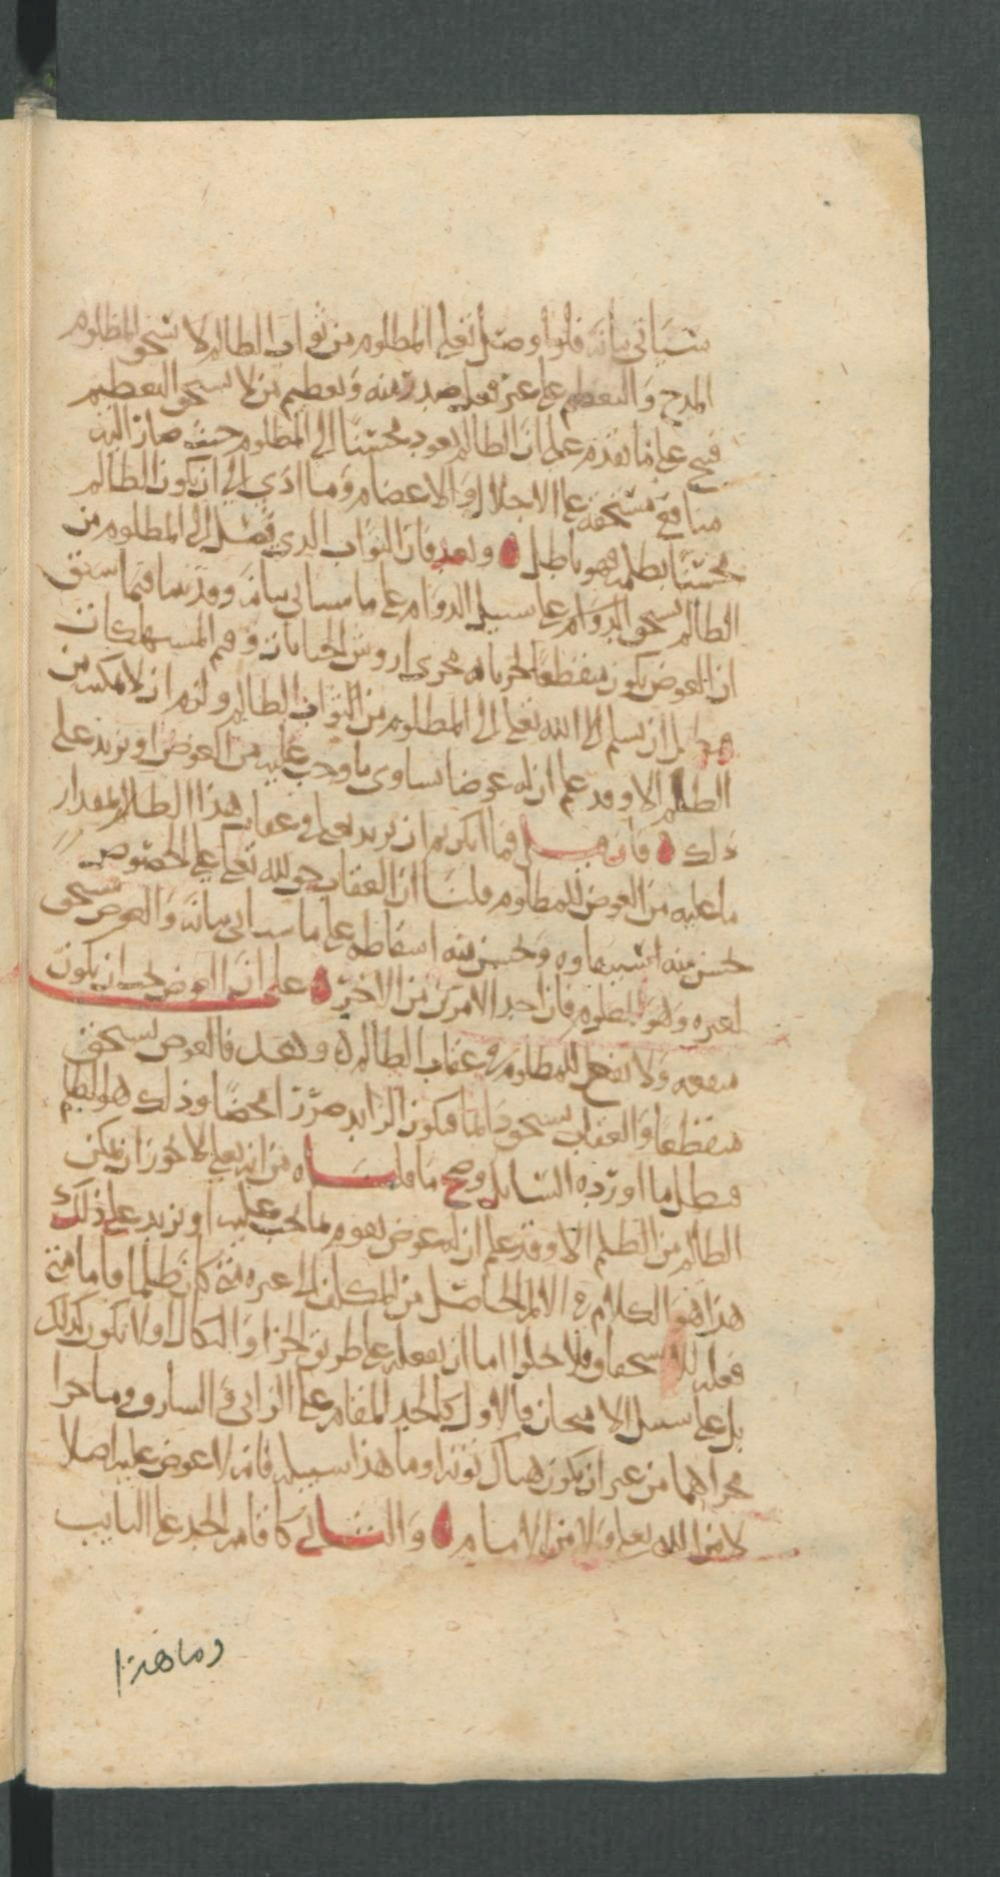 سياتي بيانه فلو اوصل تعلى المظلوم من ثواب الظالم لا ستحق المظلوم
المدح والتعظيم على غير فعل صدر منه وتعظيم من لا يستحق التعظيم
قبيح على ما تقدم على ان الظالم يعود محسنا الى المظلوم حيث صار اليه
منافع مستحقه على الاجلال والاعظام وما ادى الى ان يكون الظالم
محسنا بظلمه فهو باطل ۝ وبعد فان الثواب الذي يصل الى المظلوم من
الظالم يستحق الدوام على سبيل الدوام على ما سياتي بيانه وقد بينا فيما سبق
ان العوض يكون منقطعا لجريانه مجرى اروش الجنايات وقيم المستهلكات
ان يسلم الى الله تعلى الى المظلوم من الثواب الظالم ولزم ان لا يمكن من
الظلم الا وقد علم ان له عوضا يساوي ما وجب عليه من العوض او يزيد على
ذلك ۝ فان قيل فما انكرتم ان يزيد تعلى في عقاب هذا الظالم بمقدار
ما عليه من العوض للمظلوم قلنا ان العقاب حق لله تعلى على الخصوص
حسن منه استيفاوه وحسن منه اسقاطه على ما سياتي بيانه والعوض يستحق
لغيره وهو المظلوم فان احد الامرين من الاخر ۝ على انما العوض يجب ان يكون
منفعه ولا نفع للمظلوم في عقاب الظالم له وبعد فالعوض يستحق
منقطعا والعقاب يستحق دايما فيكون الزايد ضررا محضا وذلك هو الظلم
فبطل ما اورده السايل وصح ما قلناه من انه تعلى لا يجوز ان يمكن
الظالم من الظلم الا وقد علم ان له عوض يقوم بما يجب عليه او يزيد على ذلك
هذا هو الكلام في الالم الحاصل من المكلف الى غيره متى كان ظلما فاما متى
فعله للاستحقاق فلا يخلوا اما ان يفعله على طريق الجزا والنكال او لا يكون كذلك
بل على سبيل الامتحان فالاول كالحد المقام على الزاني والسارق وما جرا
مجراهما من غير ان يكون هناك توبه وما هذا سبيله فانه لا عوض عليه اصلا
لا من الله تعلى ولا من الامام ۝ والثاني كاقامه الحد على التايب
وما هذا